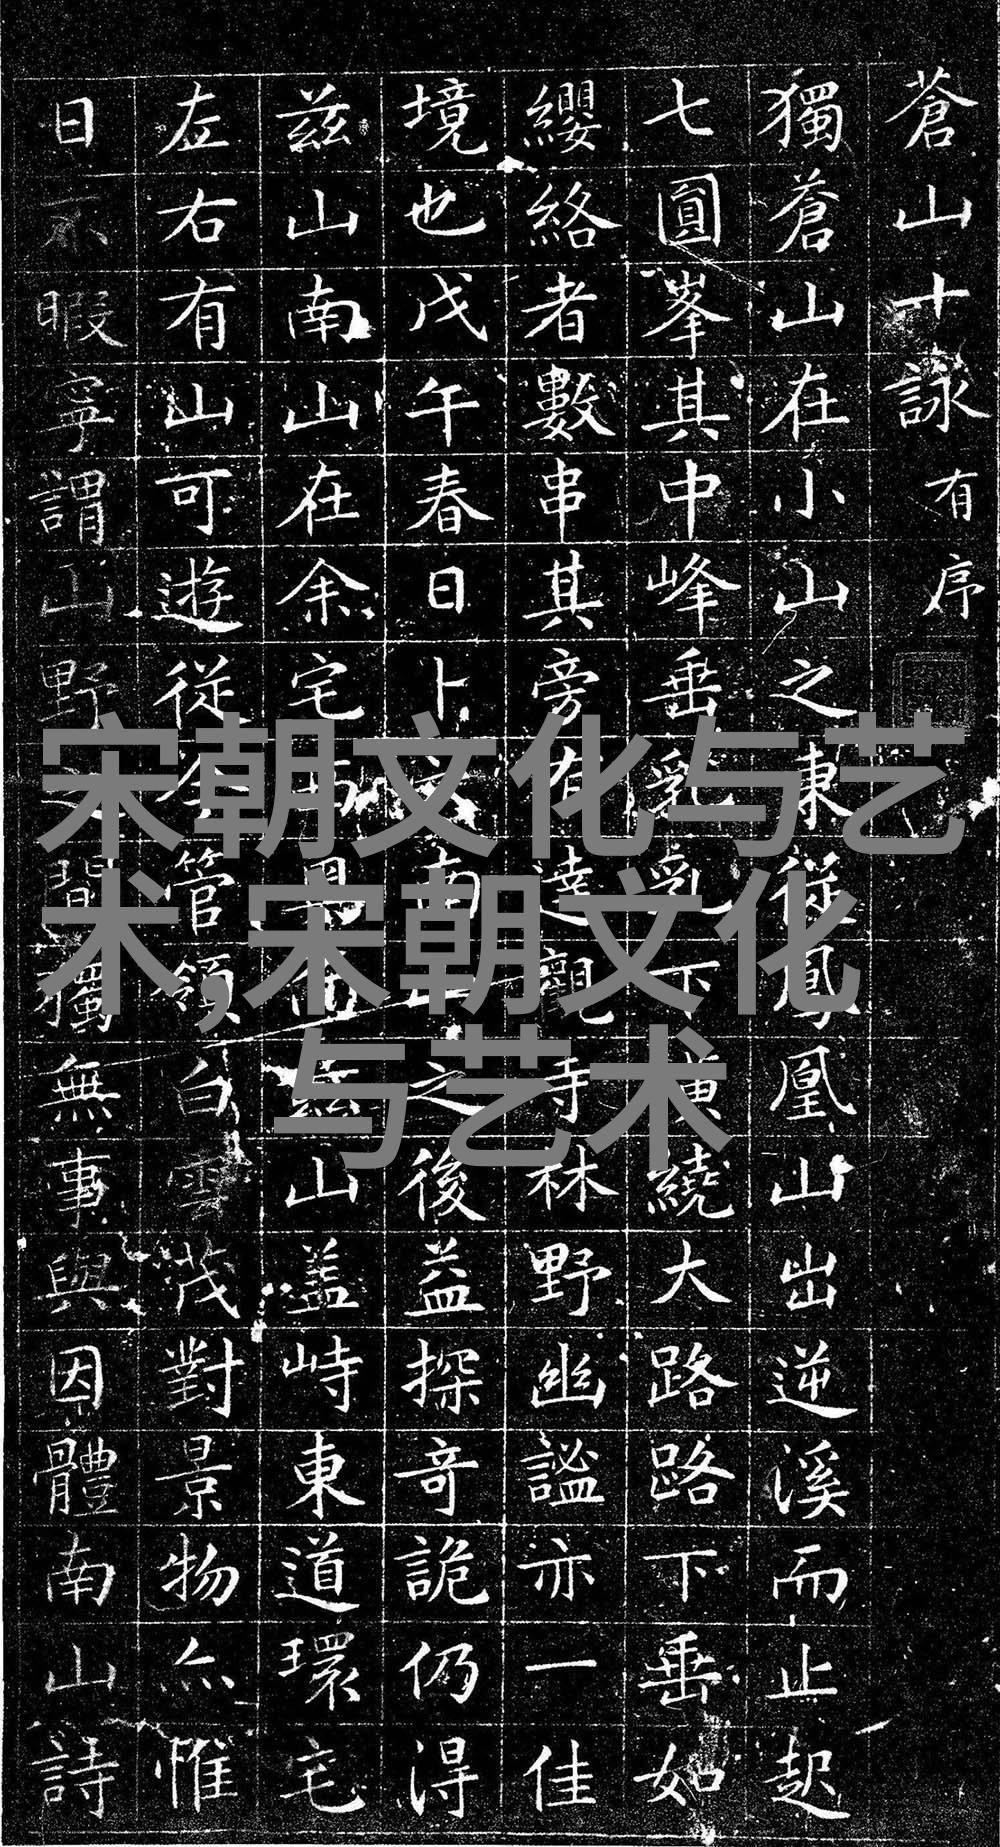 蒼山十詠 有序
獨蒼山在小山之東從鳳凰山出逆溪而止起
七圓峯其中峰垂乳乳下橫繞大路路下垂如
纓絡者數串其旁有達觀寺林野幽謐亦一佳
境也戊午春日卜南山之後益探奇詭仍得
茲山南山在余宅茲山盖峙東道環宅
左右有山可遊從今管領白雲茂對景物亦惟
日不暇寧謂山野之間獨無事與因體南山詩
宋朝文化与艺
术,宋朝文化
与艺术